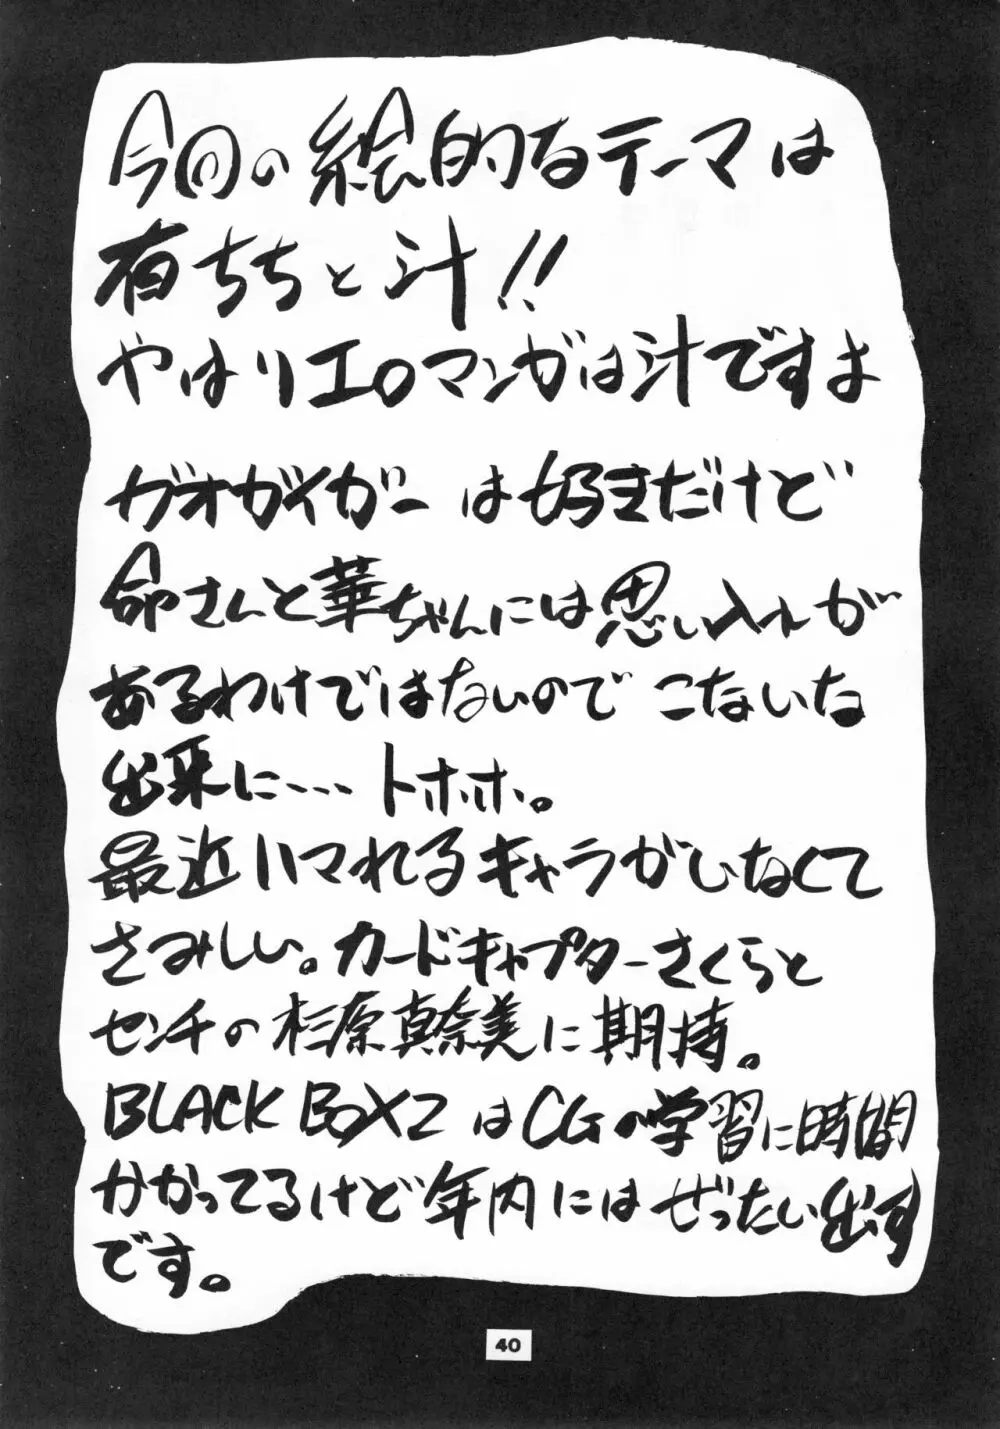 今回の絵的なテーマは
有ちちと汁!!
やはりエロマンガは汁ですよ
ガオガイガーは好きだけど
命さんと華ちゃんには思い入れが
あるわけではないのでこないな
出来に… トホホ。
最近ハマれるキャラがいなくて
さみしい。カードキャプターさくらと
センチの杉原真奈美に期待。
BLACK BOX2はCGの学習に時間
かかってるけど年内にはぜったい出す
です。
40